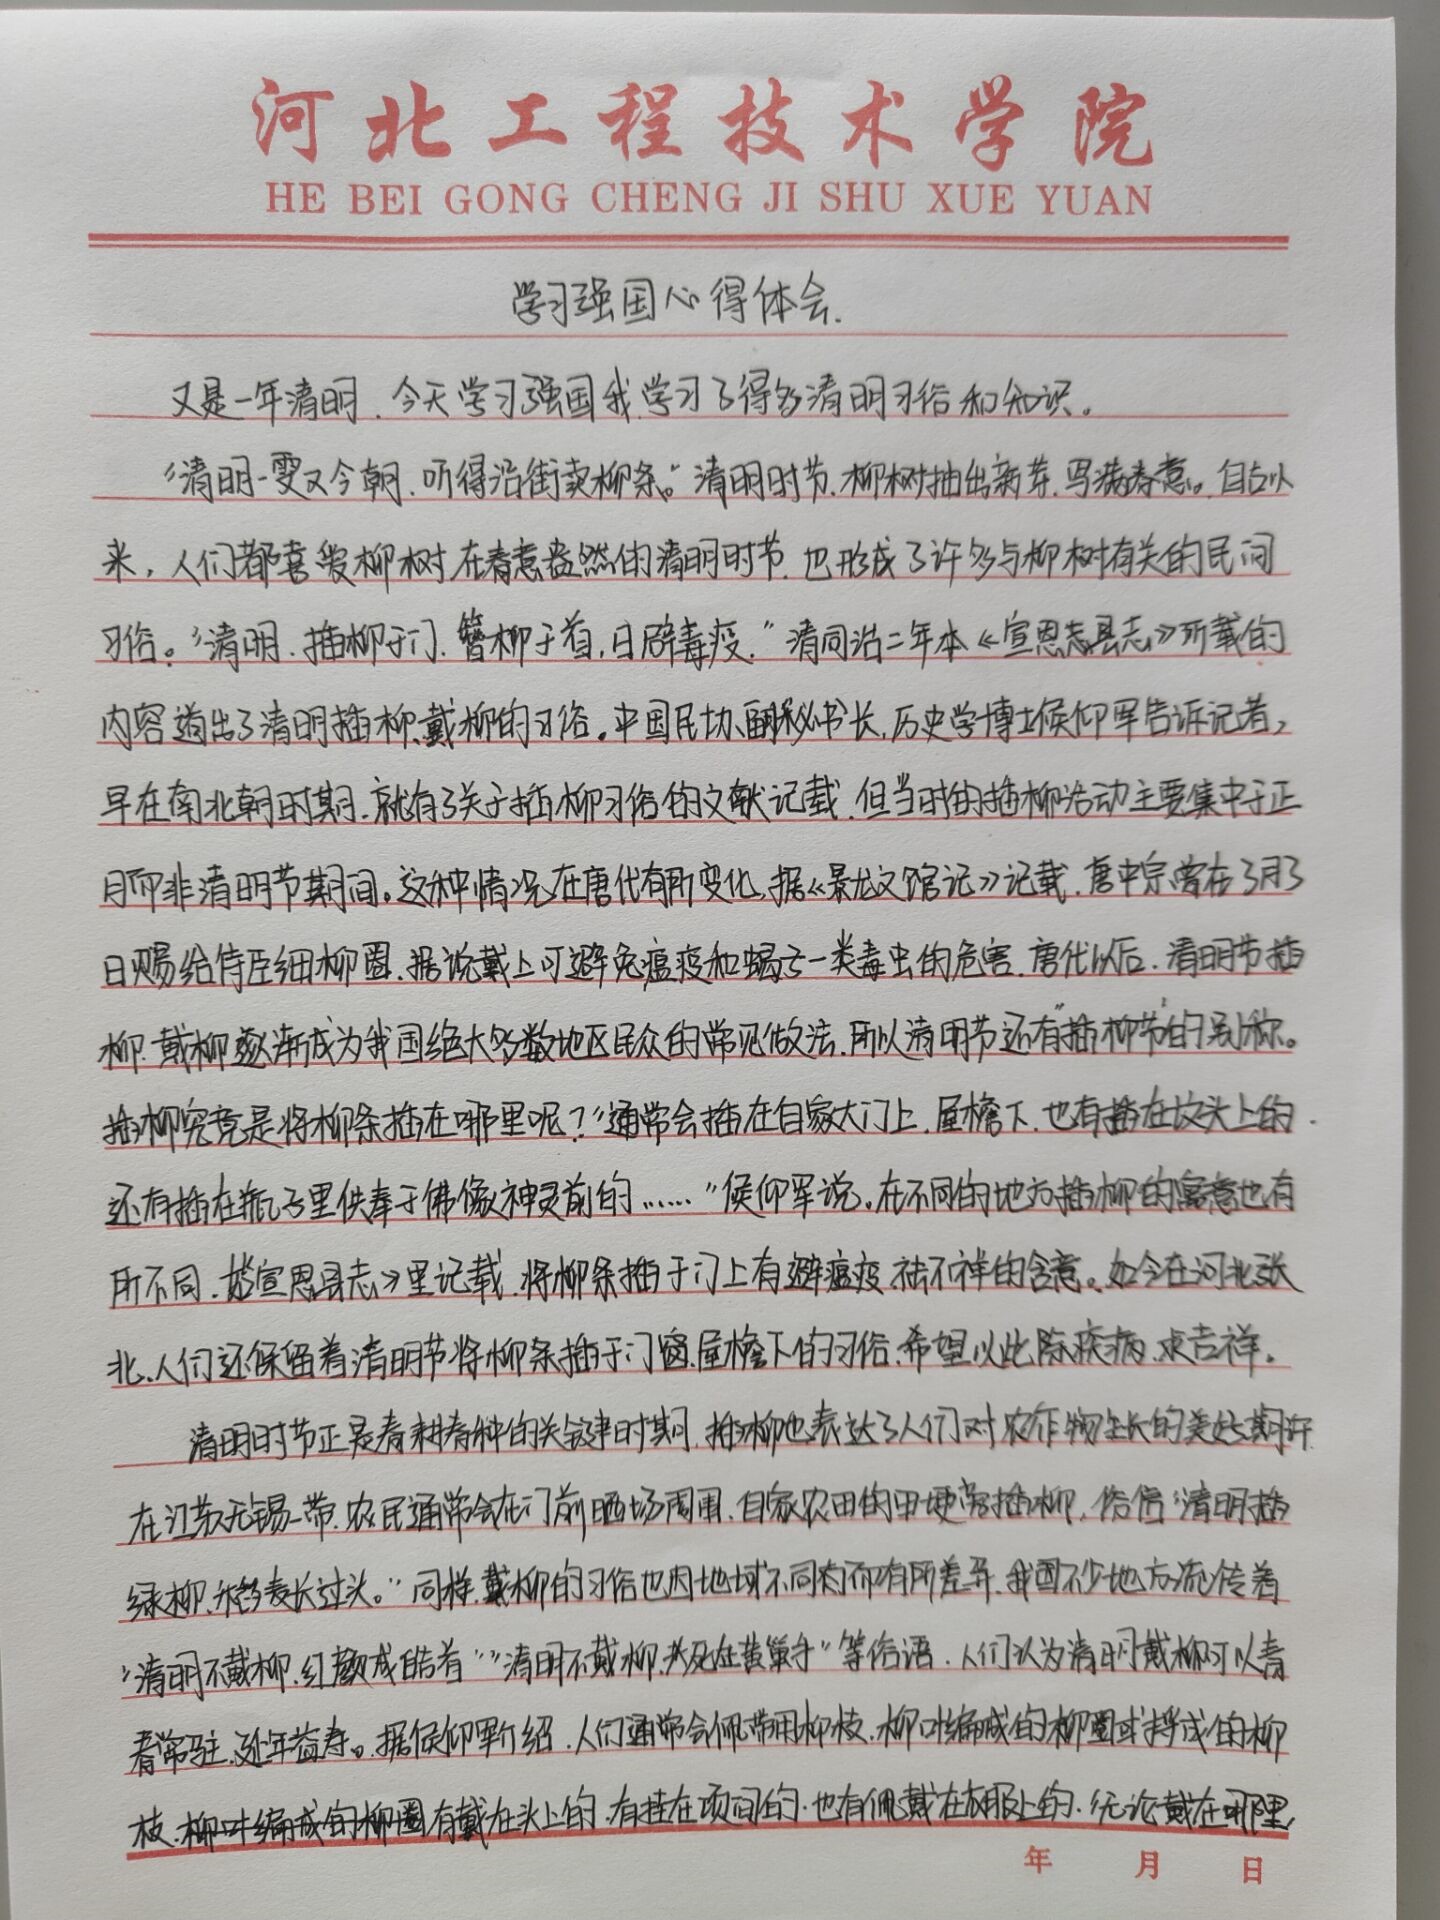 河北工程技术学院
HE BEI GONG CHENG JI SHU XUE YUAN
学习强国心得体会.
又是一年清明.今天学习强国我学习了得多清明习俗和知识.
"清明一霎又今朝.听得沿街卖柳条。"清明时节.柳树抽出新芽.写满春意。自古以
来,人们都喜爱柳树.在春意盎然的清明时节.也形成了许多与柳树有关的民间
习俗。"清明.插柳于门.簪柳于首,曰辟毒疫."清同治二年本《宣恩县志》所载的
内容道出了清明插柳、戴柳的习俗。中国民协、副秘书长,历史学博士侯仰军告诉记者,
早在南北朝时期.就有了关于插柳习俗的文献记载.但当时的插柳活动主要集中于正
月而非清明节期间。这种情况在唐代有所变化.据《景龙文馆记》记载.唐中宗曾在3月3
日赐给侍臣细柳圈.据说戴上可避免瘟疫和蝎子一类毒虫的危害.唐代以后.清明节插
柳.戴柳逐渐成为我国绝大多数地区民众的常见做法.所以清明节还有"插柳节"的别称。
插柳究竟是将柳条插在哪里呢?"通常会插在自家大门上.屋檐下.也有插在坟头上的.
还有插在瓶子里供奉于佛像神灵前的......"侯仰军说。在不同的地方插柳的寓意也有
所不同.宣恩县志》里记载.将柳条插于门上有避瘟疫.祛不祥的含意。如今在河北张
北.人们还保留着清明节将柳条插于门窗.屋檐下的习俗.希望以此除疾病.求吉祥。
清明时节正是春耕春种的关键时期.插柳也表达了人们对农作物生长的美好期许.
在江苏无锡一带.农民通常会在门前晒场周围.自家农田的田埂旁插柳,俗信"清明插
绿柳.麦长过头。"同样.戴柳的习俗也因地域不同而有所差异.我国不少地方流传着
"清明不戴柳.红颜成皓首""清明不戴柳.死在黄巢手"等俗语.人们认为清明戴柳可以青
春常驻.延年益寿。据侯仰军介绍.人们通常会佩带用柳枝.柳叶编成的柳圈或捋成的柳
枝.柳叶编成的柳圈有戴在头上的.有挂在项间的.也有佩戴在衣服上的."无论戴在哪里,
年 月 日